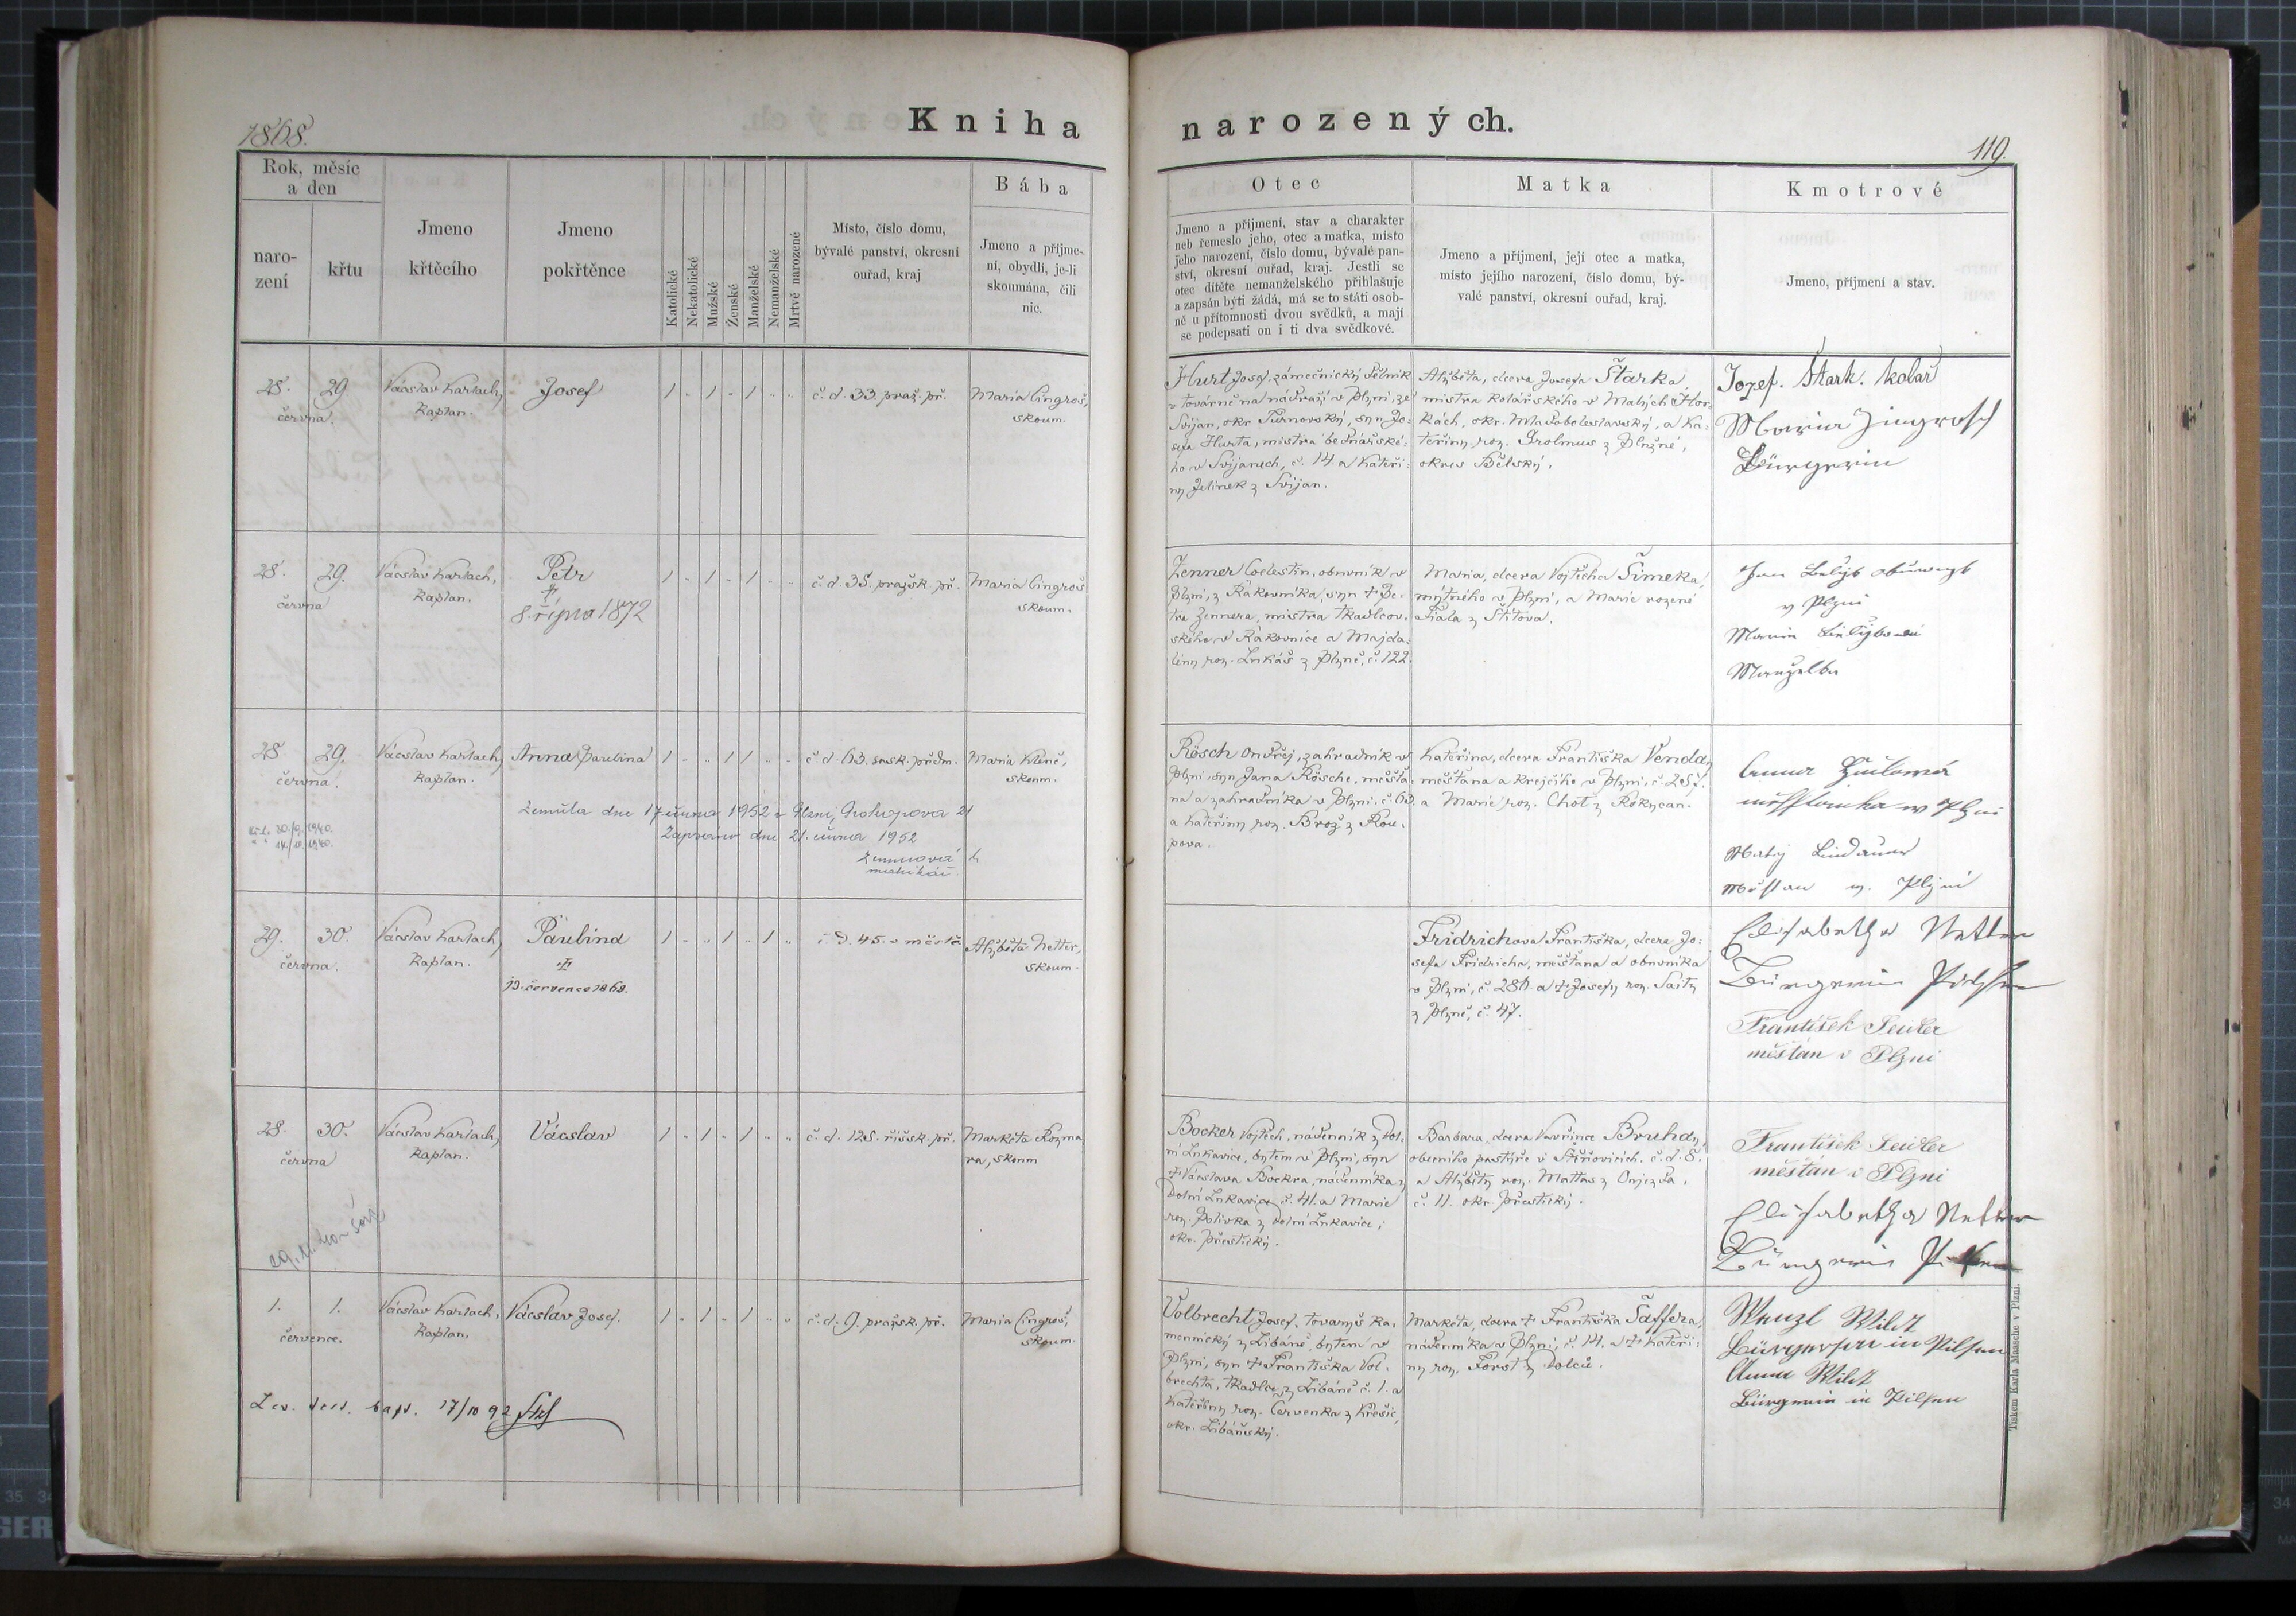 1868.
Kniha
narozených.
119.
Rok, měsíc
a den
naro-
zení
křtu
Jmeno
křtěcího
Jmeno
pokřtěnce
Katolické
Nekatolické
Mužské
Ženské
Manželské
Nemanželské
Mrtvě narozené
Místo, číslo domu,
bývalé panství, okresní
ouřad, kraj
Bába
Jmeno a příjme-
ní, obydlí, je-li
skoumána, čili
nic.
Otec
Jmeno a příjmení, stav a charakter
neb řemeslo jeho, otec a matka, místo
jeho narození, číslo domu, bývalé pan-
ství, okresní ouřad, kraj. Jestli se
otec dítěte nemanželského přihlašuje
a zapsán býti žádá, má se to státi osob-
ně u přítomnosti dvou svědků, a mají
se podepsati on i ti dva svědkové.
Matka
Jmeno a příjmení, její otec a matka,
místo jejího narození, číslo domu, bý-
valé panství, okresní ouřad, kraj.
Kmotrové
Jmeno, příjmení a stav.
28. 29.
června.
Václav Karlach,
Kaplan.
Josef
1 - 1 - 1 - -
č. d. 33. praž. př.
Maria Cingroš,
skoum.
Hurt Josef, zámečnický dělník
v továrně na nádraží v Plzni, ze
Svijan, okr. Turnovský, syn Jo-
sefa Hurta, mistra bednářské-
ho v Svijanech, č. 14 a Kateři-
ny Jelínek z Svijan.
Alžběta, dcera Josefa Štarka,
mistra kolářského v Malých Hor-
kách, okr. Mladoboleslavský, a Ka-
teřiny roz. Grolmus z Plužné,
okres Bělský.
Jozef. Stark. kolař
Maria Zingrosch
Bürgerin
28. 29.
června
Václav Karlach,
Kaplan.
Petr
†
8. října 1872
1 - 1 - 1 - -
č. d. 35. pražsk. př.
Maria Cingroš
skoum.
Zenner Coelestin, obuvník v
Plzni, z Rakovníka, syn † Pe-
tra Zennera, mistra tkadlcov-
ského v Rakovníce a Majda-
lény roz. Lukáš z Plzně, č. 122.
Maria, dcera Vojtěcha Šimeka,
mýtného v Plzni, a Marie rozené
Fiala z Štítova.
obuwnyk
v Plzni
Manželka
28 29.
června.
Václav Karlach,
Kaplan.
Anna Paulina
1 - - 1 1 - -
č. d. 63. sask. předm.
Maria Klenč,
skoum.
Zemřela dne 17. února 1952 v Plzni, Prokopova 21
Zapsáno dne 21. února 1952
matrikář.
30./9. 1940.
14./11. 1940.
Rösch Ondřej, zahradník v
Plzni, syn Jana Rösche, měšťa-
na a zahradníka v Plzni, č. 63.
a Kateřiny roz. Brož z Rou-
pova.
Kateřina, dcera Františka Vendy,
měšťana a krejčího v Plzni, č. 257.
a Marie roz. Chot z Rokycan.
Matěj Lindauer
Měšťan v Plzni
29. 30.
června.
Václav Karlach,
Kaplan.
Paulina
†
13. července 1868.
1 - - 1 - 1 -
č. d. 45. v městě
Alžběta Netter,
skoum.
Fridrichova Františka, dcera Jo-
sefa Fridricha, měšťana a obuvníka
v Plzni, č. 286. a † Josefy roz. Saitz
z Plzně, č. 47.
Elisabetha Netter
Bürgerin Pilsen
František Seidler
měšťan v Plzni
28. 30.
června
Václav Karlach,
Kaplan.
Václav
1 - 1 - 1 - -
č. d. 125. říšsk. př.
Markéta Kozma-
ra, skoum
Bocker Vojtěch, nádenník z Dol-
ní Lukavice, bytem v Plzni, syn
† Václava Bockra, nádenníka z
Dolní Lukavice č. 41. a Marie
roz. Polívka z dolní Lukavice,
okr. Přestický.
Barbara, dcera Vavřince Bruhy,
obecního pastýře v Štěnovicích. č. d. 8.
a Alžběty roz. Mattas z Oujezda,
č. 11. okr. Přestický.
František Seidler
měšťan v Plzni
Elisabetha Netter
Bürgerin
1. 1.
července.
Václav Karlach,
Kaplan.
Václav Josef.
1 - 1 - 1 - -
č. d. 9. pražsk. př.
Maria Cingroš,
skoum.
bapt. 17/10 92
Volbrecht Josef, tovaryš ka-
menický z Libáně, bytem v
Plzni, syn † Františka Vol-
brechta, tkadlce z Libáně č. 1. a
Kateřiny roz. Červenka z Křešic,
okr. Libáňský.
Markéta, dcera † Františka Šaffera,
nádenníka v Plzni, č. 14. a † Kateři-
ny roz. Forst z Dolců.
Wenzl Wild
Bürgersfrau in Pilsen
Anna Wild
Bürgerin in Pilsen
Tiskem Karla Maasche v Plzni.